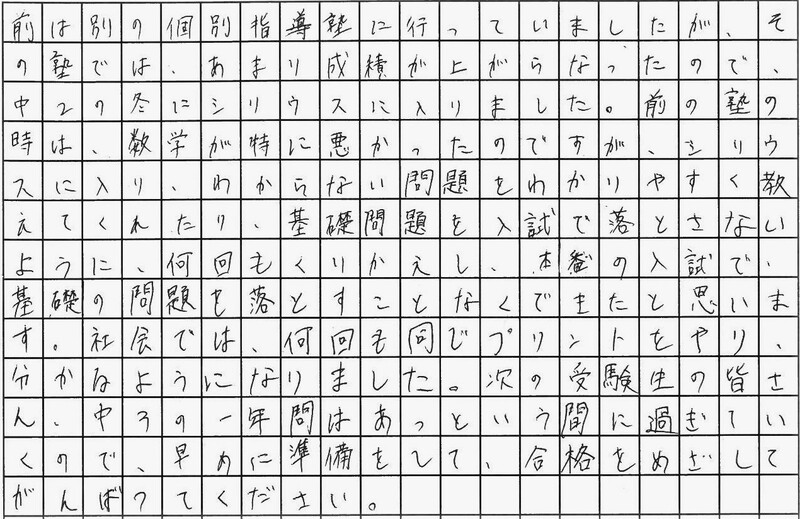 前は別の個別指導塾に行っていましたが、そ
の塾では、あまり成積が上がらなったので、
中2の冬にシリウスに入りました。前の塾の
時は、数学が特に悪かったのですが、シリウ
スに入り、わからない問題をわかりやすく教
えてくれたり、基礎問題を入試で落とさない
ように、何回もくりかえし、本番の入試で、
基礎の問題を落とすことなくできたと思いま
す。社会では、何回も同じプリントをやり、
分かるようになりました。次の受験生の皆さ
ん、中3の一年間はあっという間に過ぎてい
くので、早めに準備をして、合格をめざして
がんばってください。